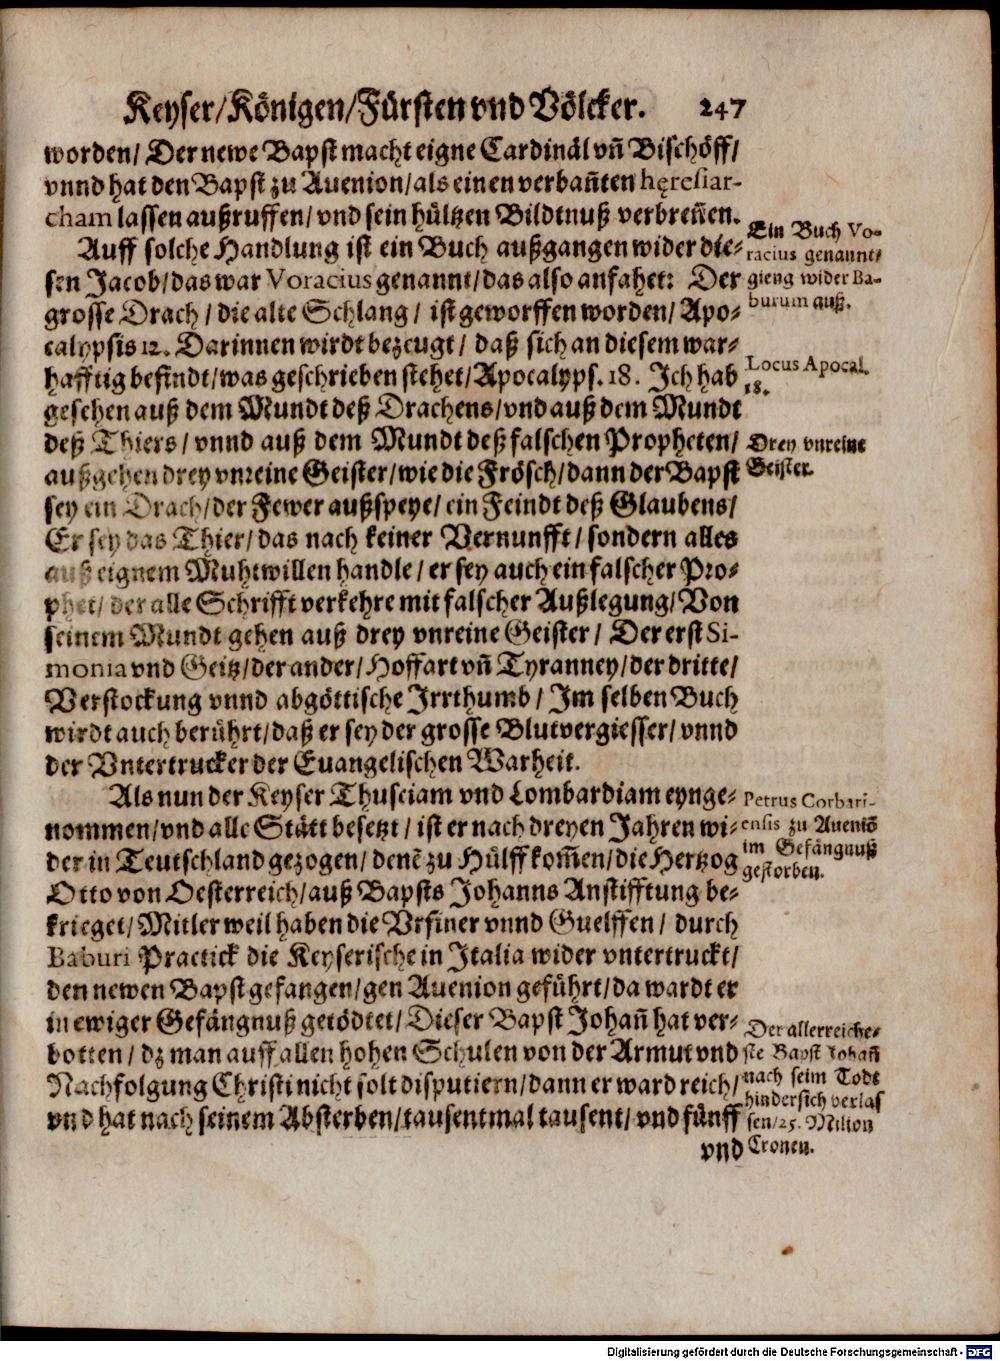 Keyser/Königen/Fürsten vnd Völcker. 247
worden/ Der newe Bapst macht eigne Cardinäl vñ Bischöff/
vnnd hat den Bapst zu Auenion/als einen verbañten hęresiar-
cham lassen außruffen/ vnd sein hültzen Bildtnuß verbreñen.
Auff solche Handlung ist ein Buch außgangen wider die-
sen Jacob/das war Voracius genannt/das also anfahet: Der
grosse Drach / die alte Schlang / ist geworffen worden/ Apo-
calypsis 12. Darinnen wirdt bezeugt / daß sich an diesem war-
hafftig befindt/was geschrieben stehet/Apocalyps. 18. Ich hab
gesehen auß dem Mundt deß Drachens/vnd auß dem Mundt
deß Thiers/ vnnd auß dem Mundt deß falschen Propheten/
außgehen drey vnreine Geister/wie die Frösch/dann der Bapst
sey ein Drach/der Fewer außspeye/ ein Feindt deß Glaubens/
Er sey das Thier/das nach keiner Vernunfft/ sondern alles
auß eignem Muhtwillen handle/ er sey auch ein falscher Pro-
phet/ der alle Schrifft verkehre mit falscher Außlegung/ Von
seinem Mundt gehen auß drey vnreine Geister/ Der erst Si-
monia vnd Geitz/der ander/Hoffart vñ Tyranney/der dritte/
Verstockung vnnd abgöttische Irrthumb/ Im selben Buch
wirdt auch berührt/daß er sey der grosse Blutvergiesser/ vnnd
der Vntertrucker der Euangelischen Warheit.
Als nun der Keyser Thusciam vnd Lombardiam eynge-
nommen/vnd alle Stätt besetzt / ist er nach dreyen Jahren wi-
der in Teutschland gezogen/ denẽ zu Hülff kom̃en/die Hertzog
Otto von Oesterreich/auß Bapsts Johanns Anstifftung be-
krieget/Mitlerweil haben die Vrsiner vnnd Guelffen / durch
Baburi Practick die Keyserische in Italia wider vntertruckt/
den newen Bapst gefangen/gen Auenion geführt/da wardt er
in ewiger Gefängnuß getödtet/ Dieser Bapst Johañ hat ver-
botten / dz man auff allen hohen Schulen von der Armut vnd
Nachfolgung Christi nicht solt disputiern/dann er ward reich/
vnd hat nach seinem Absterben/tausentmal tausent/ vnd fünff
vnd
Ein Buch Vo-
racius genannt/
gieng wider Ba-
burum auß.
Locus Apocal.
18.
Drey vnreine
Geister.
Petrus Corbari-
ensis zu Aueniõ
im Gefängnuß
gestorben.
Der allerreiche-
ste Bapst Johañ
nach seim Todt
hindersich verlas
sen/25. Milion
Cronen.
Digitalisierung gefördert durch die Deutsche Forschungsgemeinschaft - DFG